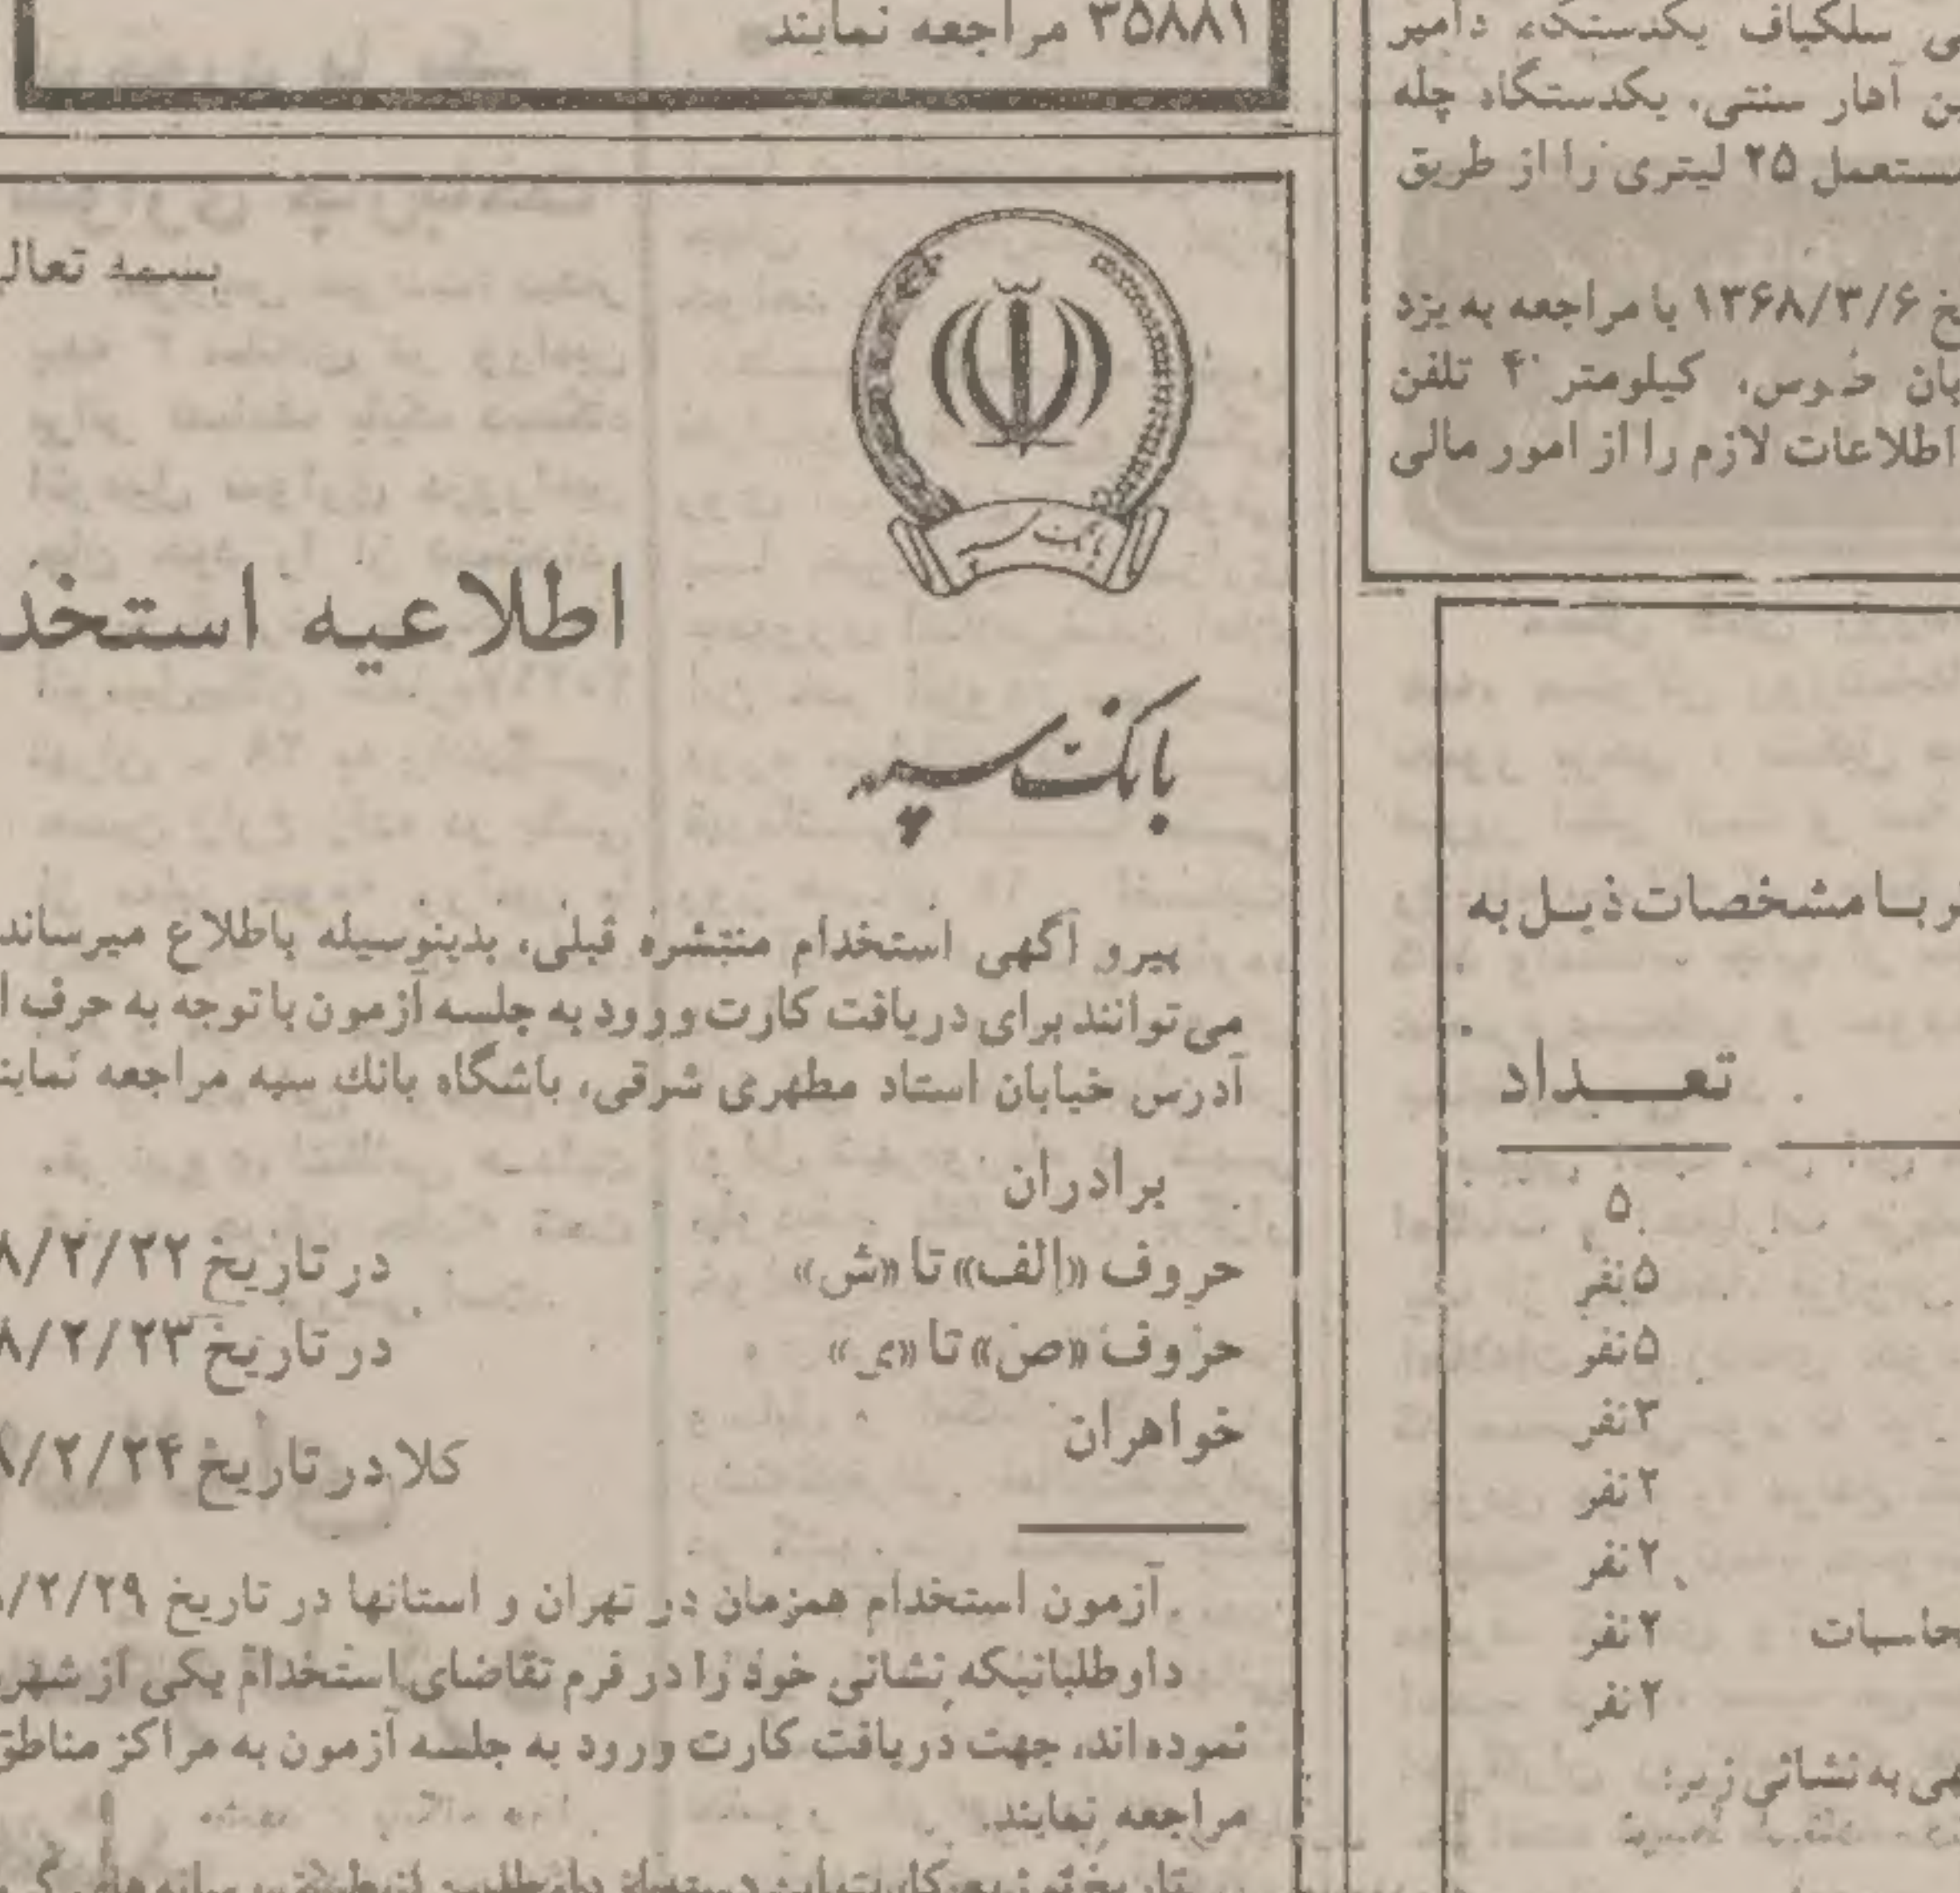 ۳۵۸۸۱ مراجعه نمایند
سلکباف یکدستگاه
آهار سنتی، یکدستگاه چله
مستعمل ۲۵ لیتری را از طریق
۱۳۶۸/۳/۶ با مراجعه به یزد
کیلومتر ۴ تلفن
اطلاعات لازم را از امور مالی
بسمه تعال
بانک سپه
اطلاعیه استخد
بانک سپه
پیرو آگهی استخدام منتشره قبلی، بدینوسیله باطلاع میرساند
می‌توانند برای دریافت کارت ورود به جلسه آزمون با توجه به حرف ا
آدرس خیابان استاد مطهری شرقی، باشگاه بانك سپه مراجعه نماین
برادران
حروف «الف» تا «ش» در تاریخ ۸/۲/۲۲
حروف «ص» تا «ی» در تاریخ ۸/۲/۲۳
خواهران
کلا در تاریخ ۸/۲/۲۴
آزمون استخدام همزمان در تهران و استانها در تاریخ ۸/۲/۲۹
داوطلبانیکه نشانی خود را در فرم تقاضای استخدام یکی از شهر
نموده‌اند، جهت دریافت کارت ورود به جلسه آزمون به مراکز مناطق
مراجعه نمایند.
ر بـا مشخصات ذیـل به
تعـــداد
۵
۵ نفر
۵ نفر
۳ نفر
۲ نفر
۲ نفر
حاسبات ۲ نفر
۲ نفر
هی به نشانی زیر: